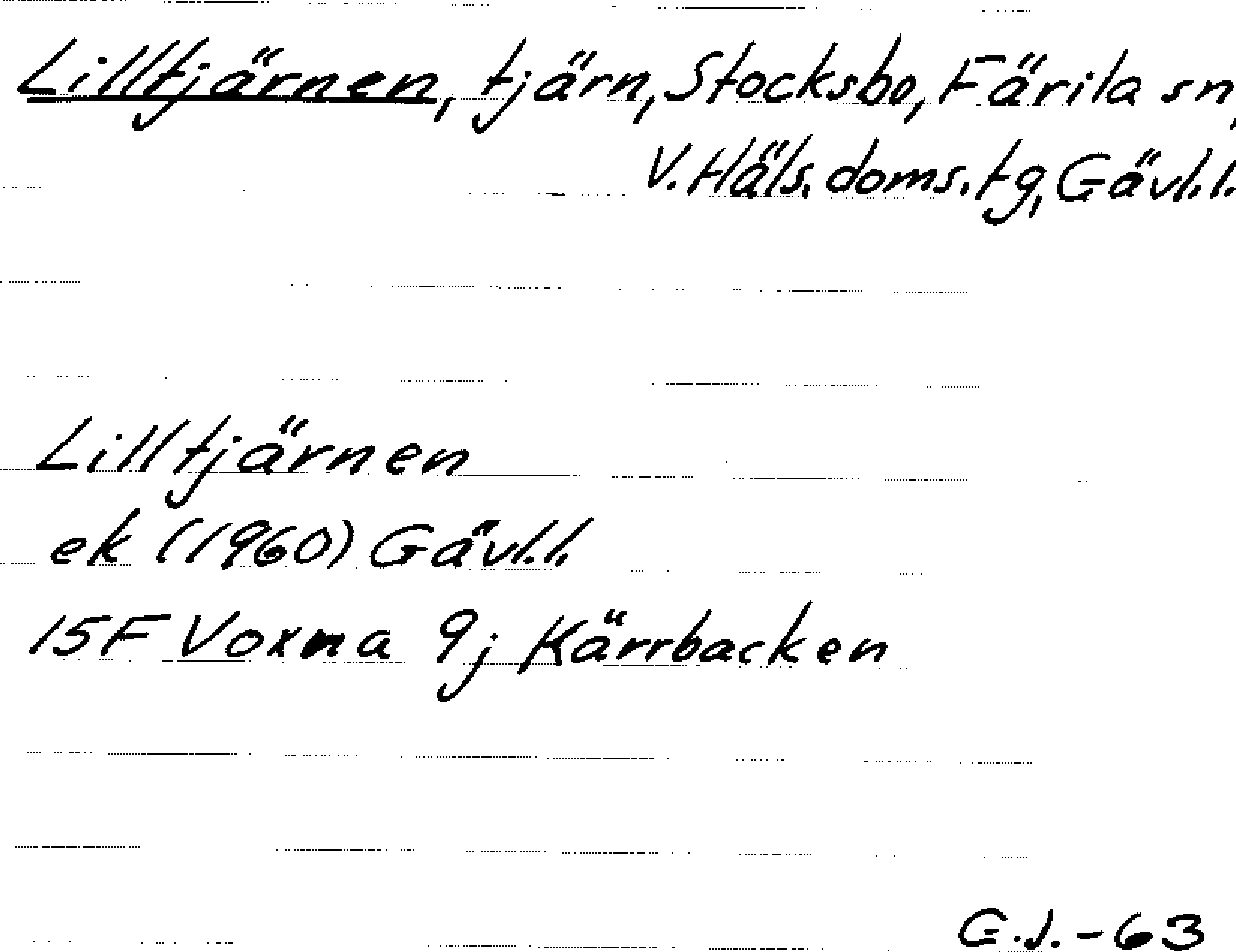 Lilltjärnen, tjärn, Stocksbo, Färila sn,
V. Häls. doms. tg, Gävl.l.
Lilltjärnen
ek (1960) Gävl.l.
15F Voxna 9j Kärrbacken
G.J.-63